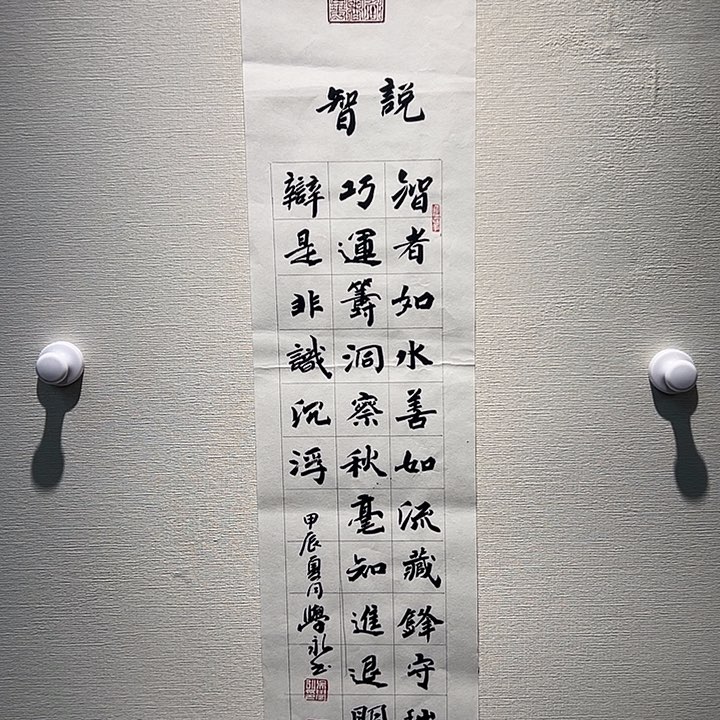 說智
智者如水善如流藏鋒守拙
巧運籌洞察秋毫知進退明
辯是非識沉浮
甲辰夏月學永書